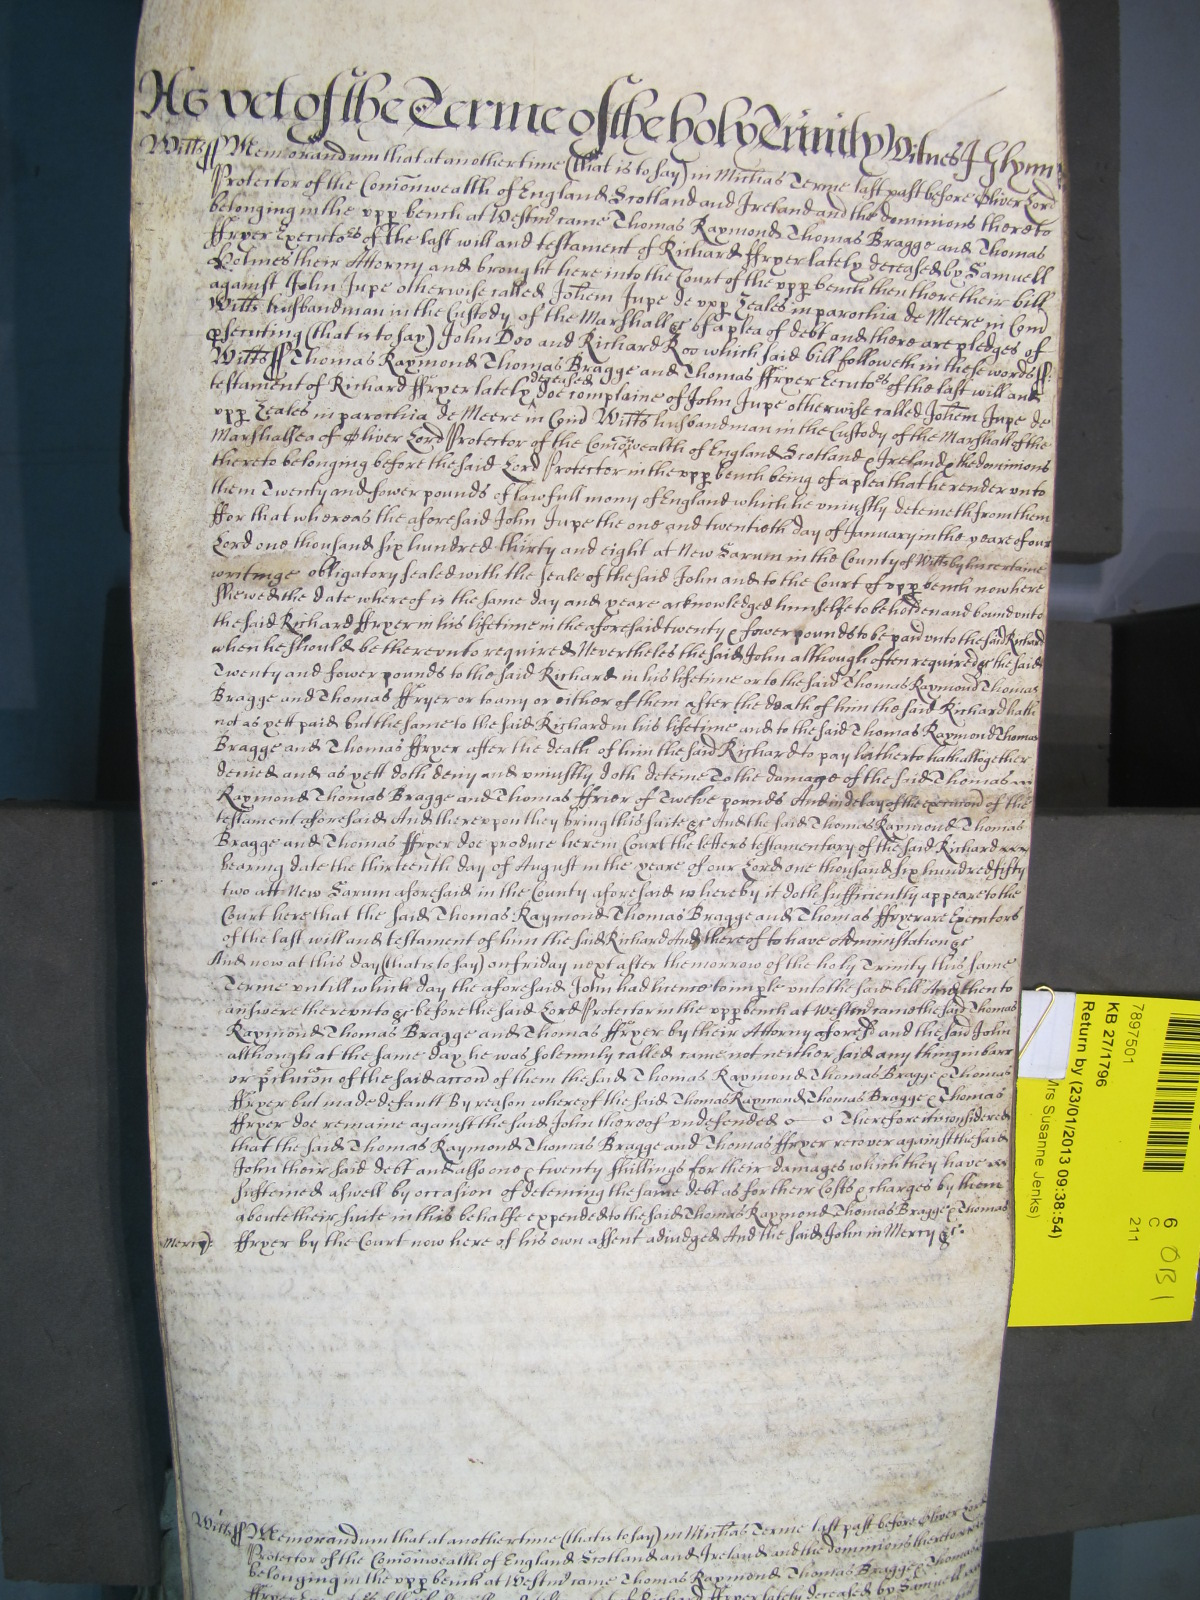 As yet of the Terme of the holy Trinity Witnes J Glynn
Wiltss Memorandum that at another time (that is to say) in Michas Terme last past before Oliver Lord
Protector of the Comonwealth of England Scotland and Ireland and the dominions thereto
belonging in the vpp bench at Westm came Thomas Raymond Thomas Bragge and Thomas
ffryer Executors of the last will and testament of Richard ffryer lately deceased by Samuell
Holmes their Attorny and brought here into the Court of the vpp bench then there their bill
against John Jupe otherwise called Johem Jupe de vpp Zeales in parochia de Meere in Com
Wilts husbandman in the Custody of the Marshall &c of a plea of debt and there are pledges of
psecuting (that is to say) John Doo and Richard Roo which said bill followeth in these words ss:
Wiltss Thomas Raymond Thomas Bragge and Thomas ffryer Executors of the last will and
testament of Richard ffryer lately deceased doe complaine of John Jupe otherwise called Johem Jupe de
vpp Zeales in parochia de Meere in Com Wilts husbandman in the Custody of the Marshall of the
Marshallsea of Oliver Lord Protector of the Comonwealth of England Scotland & Ireland & the dominions
thereto belonging before the said Lord Protector in the vpp bench being of a plea that he render vnto
them Twenty and fower pounds of lawfull mony of England which he vniustly deteineth from them
ffor that whereas the aforesaid John Jupe the one and twentieth day of January in the yeare of our
Lord one thousand six hundred thirty and eight at New Sarum in the County of Wilts by his certaine
writinge obligatory sealed with the seale of the said John and to the Court of vpp bench now here
shewed the date whereof is the same day and yeare acknowledged himselfe to be holden and bound vnto
the said Richard ffryer in his lifetime in the aforesaid twenty & fower pounds to be paid vnto the said Richard
when he should be therevnto required Nevertheles the said John although often required &c the said
Twenty and fower pounds to the said Richard in his lifetime or to the said Thomas Raymond Thomas
Bragge and Thomas ffryer or to any or either of them after the death of him the said Richard hath
not as yett paid but the same to the said Richard in his lifetime and to the said Thomas Raymond Thomas
Bragge and Thomas ffryer after the death of him the said Richard to pay hitherto hath altogether
denied and as yett doth deny and vniustly doth deteine To the damage of the said Thomas
Raymond Thomas Bragge and Thomas ffrier of Twelve pounds And in delay of the execucon of the
testament aforesaid And therevpon they bring this suite &c And the said Thomas Raymond Thomas
Bragge and Thomas ffryer doe produce here in Court the letters testamentary of the said Richard
bearing date the thirteenth day of August in the yeare of our Lord one thousand six hundred fifty
two att New Sarum aforesaid in the County aforesaid whereby it doth sufficiently appeare to the
Court here that the said Thomas Raymond Thomas Bragge and Thomas ffryer are Executors
of the last will and testament of him the said Richard And thereof to have Administration &c
And now at this day (that is to say) on friday next after the morrow of the holy Trinity this same
Terme vntill which day the aforesaid John had licence to imple vnto the said bill And then to
answere therevnto &c before the said Lord Protector in the vpp bench at Westm came the said Thomas
Raymond Thomas Bragge and Thomas ffryer by their Attorny aforesd and the said John
although at the same day he was solemnly called came not neither said any thing in barr
or pclucon of the said accon of them the said Thomas Raymond Thomas Bragge & Thomas
ffryer but made default By reason whereof the said Thomas Raymond Thomas Bragge & Thomas
ffryer doe remaine against the said John thereof vndefended Therefore it is considered
that the said Thomas Raymond Thomas Bragge and Thomas ffryer recover against the said
John their said debt and also one & twenty shillings for their damages which they have
susteined aswell by occasion of deteining the same debt as for their Costs & charges by them
about their suite in this behalfe expended to the said Thomas Raymond Thomas Bragge & Thomas
Mercye ffryer by the Court now here of his own assent adiudged And the said John in Mercy &c.
Wiltss Memorandum that at another time (that is to say) in Michas Terme last past before Oliver Lord
Protector of the Comonwealth of England Scotland and Ireland and the dominions thereto
belonging in the vpp bench at Westm came Thomas Raymond Thomas Bragge & Thomas
of Richard ffryer lately deceased by Samuell
7897501
KB 27/1796
Return by (23/01/2013 09:38:54)
Mrs Susanne Jenks)
6
C
211
OB1